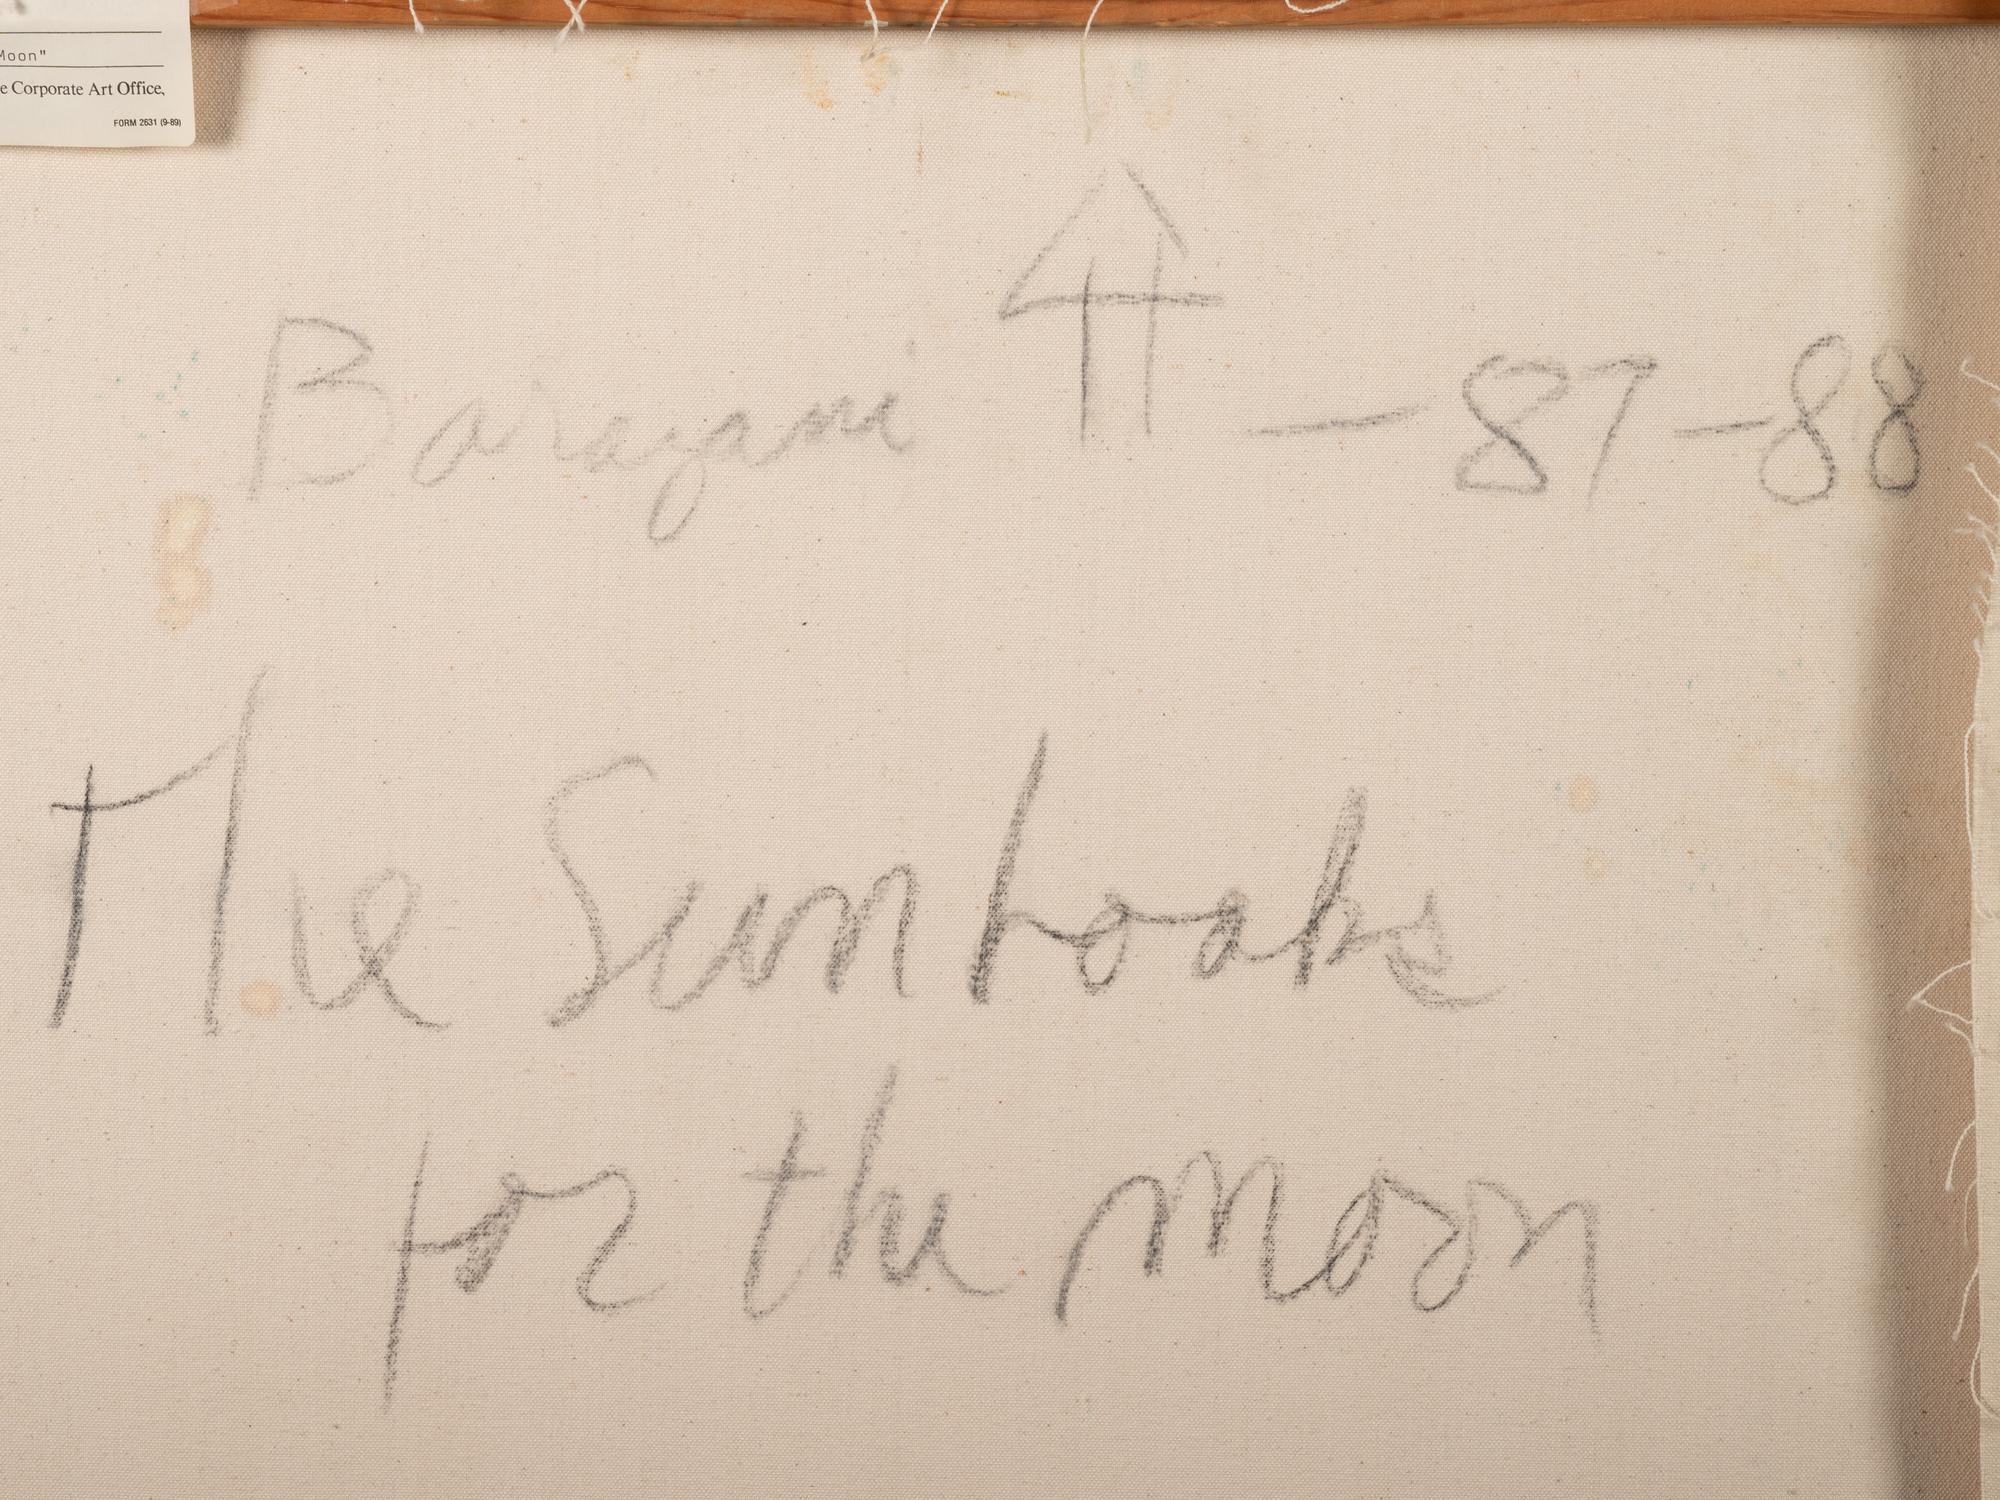 Moon"
e Corporate Art Office,
FORM 2631 (9-89)
Barazani — 87-88
The Sun looks
for the moon